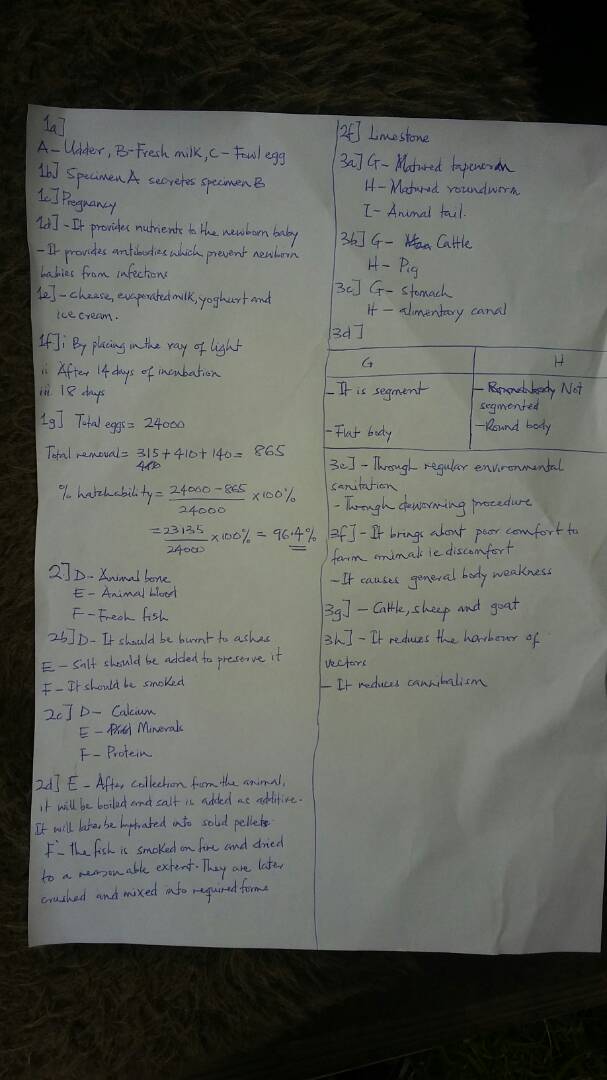 1a]
A- Udder, B-Fresh milk, C- Fowl egg
1b] Specimen A secretes specimen B
1c] Pregnancy
1d] - It provides nutrients to the newborn baby
- It provides antibodies which prevent newborn
babies from infections
1e] - cheese, evaporated milk, yoghurt and
ice cream.
1f] i By placing in the ray of light
ii After 14 days of incubation
iii 18 days
1g] Total eggs = 24000
Total removal = 315 + 410 + 140 = 865
% hatchability = 24000 - 865 x 100%
24000
= 23135 x 100% = 96.4%
24000
2] D- Animal bone
E- Animal blood
F- Fresh fish
2b] D- It should be burnt to ashes
E- Salt should be added to preserve it
F- It should be smoked
2c] D- Calcium
E- Minerals
F- Protein
2d] E- After collection from the animal,
it will be boiled and salt is added as additive.
It will later be hydrated into solid pellets.
F- the fish is smoked on fire and dried
to a reasonable extent. They are later
crushed and mixed into required forms
2f] Limestone
3a] G- Matured tapeworm
H- Matured roundworm
I- Animal tail.
3b] G- Cattle
H- Pig
3c] G- stomach
H- alimentary canal
3d]
G H
- It is segment - Not
segmented
- Flat body - Round body
3e] - Through regular environmental
sanitation
- Through deworming procedure
3f] - It brings about poor comfort to
farm animals ie discomfort
- It causes general body weakness
3g] - Cattle, sheep and goat
3h] - It reduces the harbour of
vectors
- It reduces cannibalism